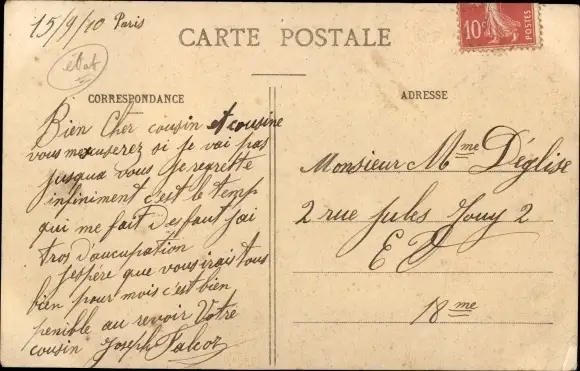 15/9/10 Paris
état
CARTE POSTALE
10c
CORRESPONDANCE
Bien Cher cousin et cousine
vous mexcuserez si je vai pas
jusqua vous je regrette
infiniment c'est le temp
qui me fait desfaut jai
tros d'aucupation
jespère que vous irais tous
bien pour mois c'est bien
penible au revoir Votre
cousin Joseph
ADRESSE
Monsieur Mme Déglise
2 rue Jules Jouy 2
18me